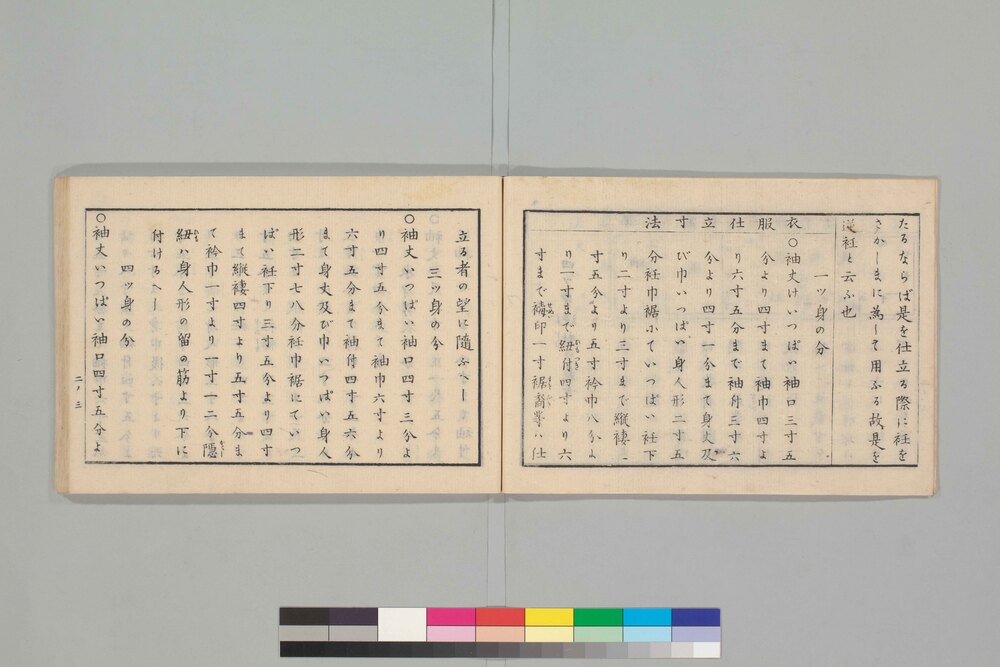 たるならば是を仕立る際に衽を
さかしまに為して用ふる故是を
逆衽と云ふ也
一ッ身の分
衣服仕立寸法
○袖丈けいつぱい袖口三寸五
分より四寸まて袖巾四寸よ
り六寸五分まで袖付三寸六
分より四寸一分まて身丈及
び巾いつぱい身人形二寸五
分衽巾裾にていつぱい衽下
り二寸より三寸まで縦褄
寸五分より五寸衿巾八分よ
り一寸まで紐付四寸より六
寸まで 印一寸裾 等ハ仕
立る者の望に随ふべし
三ッ身の分
○袖丈いつぱい袖口四寸三分よ
り四寸五分まて袖巾六寸より
六寸五分まて袖付四寸五六分
まて身丈及び巾いつぱい身人
形二寸七八分衽巾裾にていつ
ぱい衽下り三寸五分より四寸
まて縦褄四寸より五寸五分ま
て衿巾一寸より一寸一二分隠
紐ハ身人形の留の筋より下に
付けるべし
四ッ身の分
○袖丈いつぱい袖口四寸五分よ
二ノ三